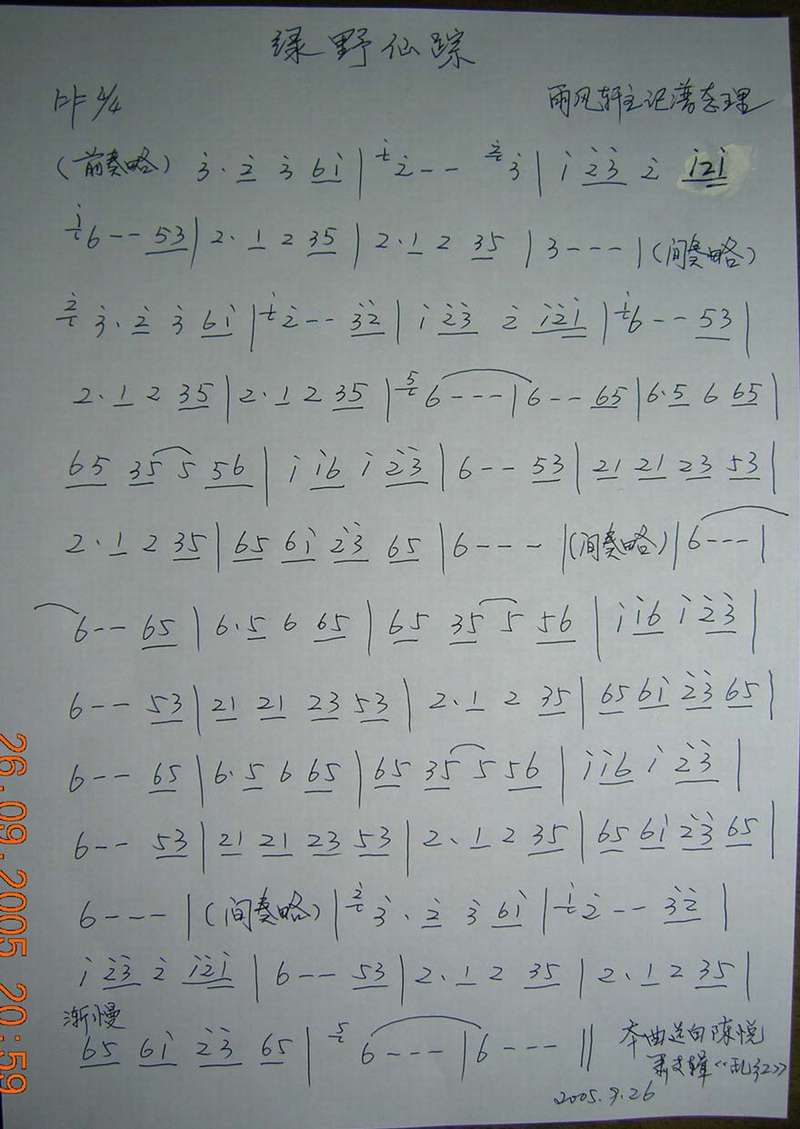 绿野仙踪
1=F 4/4 雨风轩主记谱整理
(前奏略) 3̇·2̇ 3̇ 61̇ | 1̇ 2̇-- 2̇ 3̇ | 1̇ 2̇3̇ 2̇ 1̇2̇1̇
1̇ 6--53 | 2·1 2 35 | 2·1 2 35 | 3--- | (间奏略)
2̇ 3̇·2̇ 3̇ 61̇ | 1̇ 2̇-- 3̇2̇ | 1̇ 2̇3̇ 2̇ 1̇2̇1̇ | 1̇ 6--53 |
2·1 2 35 | 2·1 2 35 | 5 6--- | 6--65 | 6·5 6 65 |
65 35 5 56 | 1̇ 1̇6 1̇ 2̇3̇ | 6--53 | 21 21 23 53 |
2·1 2 35 | 65 61̇ 2̇3̇ 65 | 6--- | (间奏略) | 6--- |
6--65 | 6·5 6 65 | 65 35 5 56 | 1̇ 1̇6 1̇ 2̇3̇ |
6--53 | 21 21 23 53 | 2·1 2 35 | 65 61̇ 2̇3̇ 65 |
6---65 | 6·5 6 65 | 65 35 5 56 | 1̇ 1̇6 1̇ 2̇3̇ |
6--53 | 21 21 23 53 | 2·1 2 35 | 65 61̇ 2̇3̇ 65 |
6--- | (间奏略) | 2̇ 3̇·2̇ 3̇ 61̇ | 1̇ 2̇-- 3̇2̇ |
1̇ 2̇3̇ 2̇ 1̇2̇1̇ | 6--53 | 2·1 2 35 | 2·1 2 35 |
渐慢
65 61̇ 2̇3̇ 65 | 5 6--- | 6--- ‖ 本曲选自陈悦
箫专辑《乱红》
2005.9.26
26.09.2005 20:59